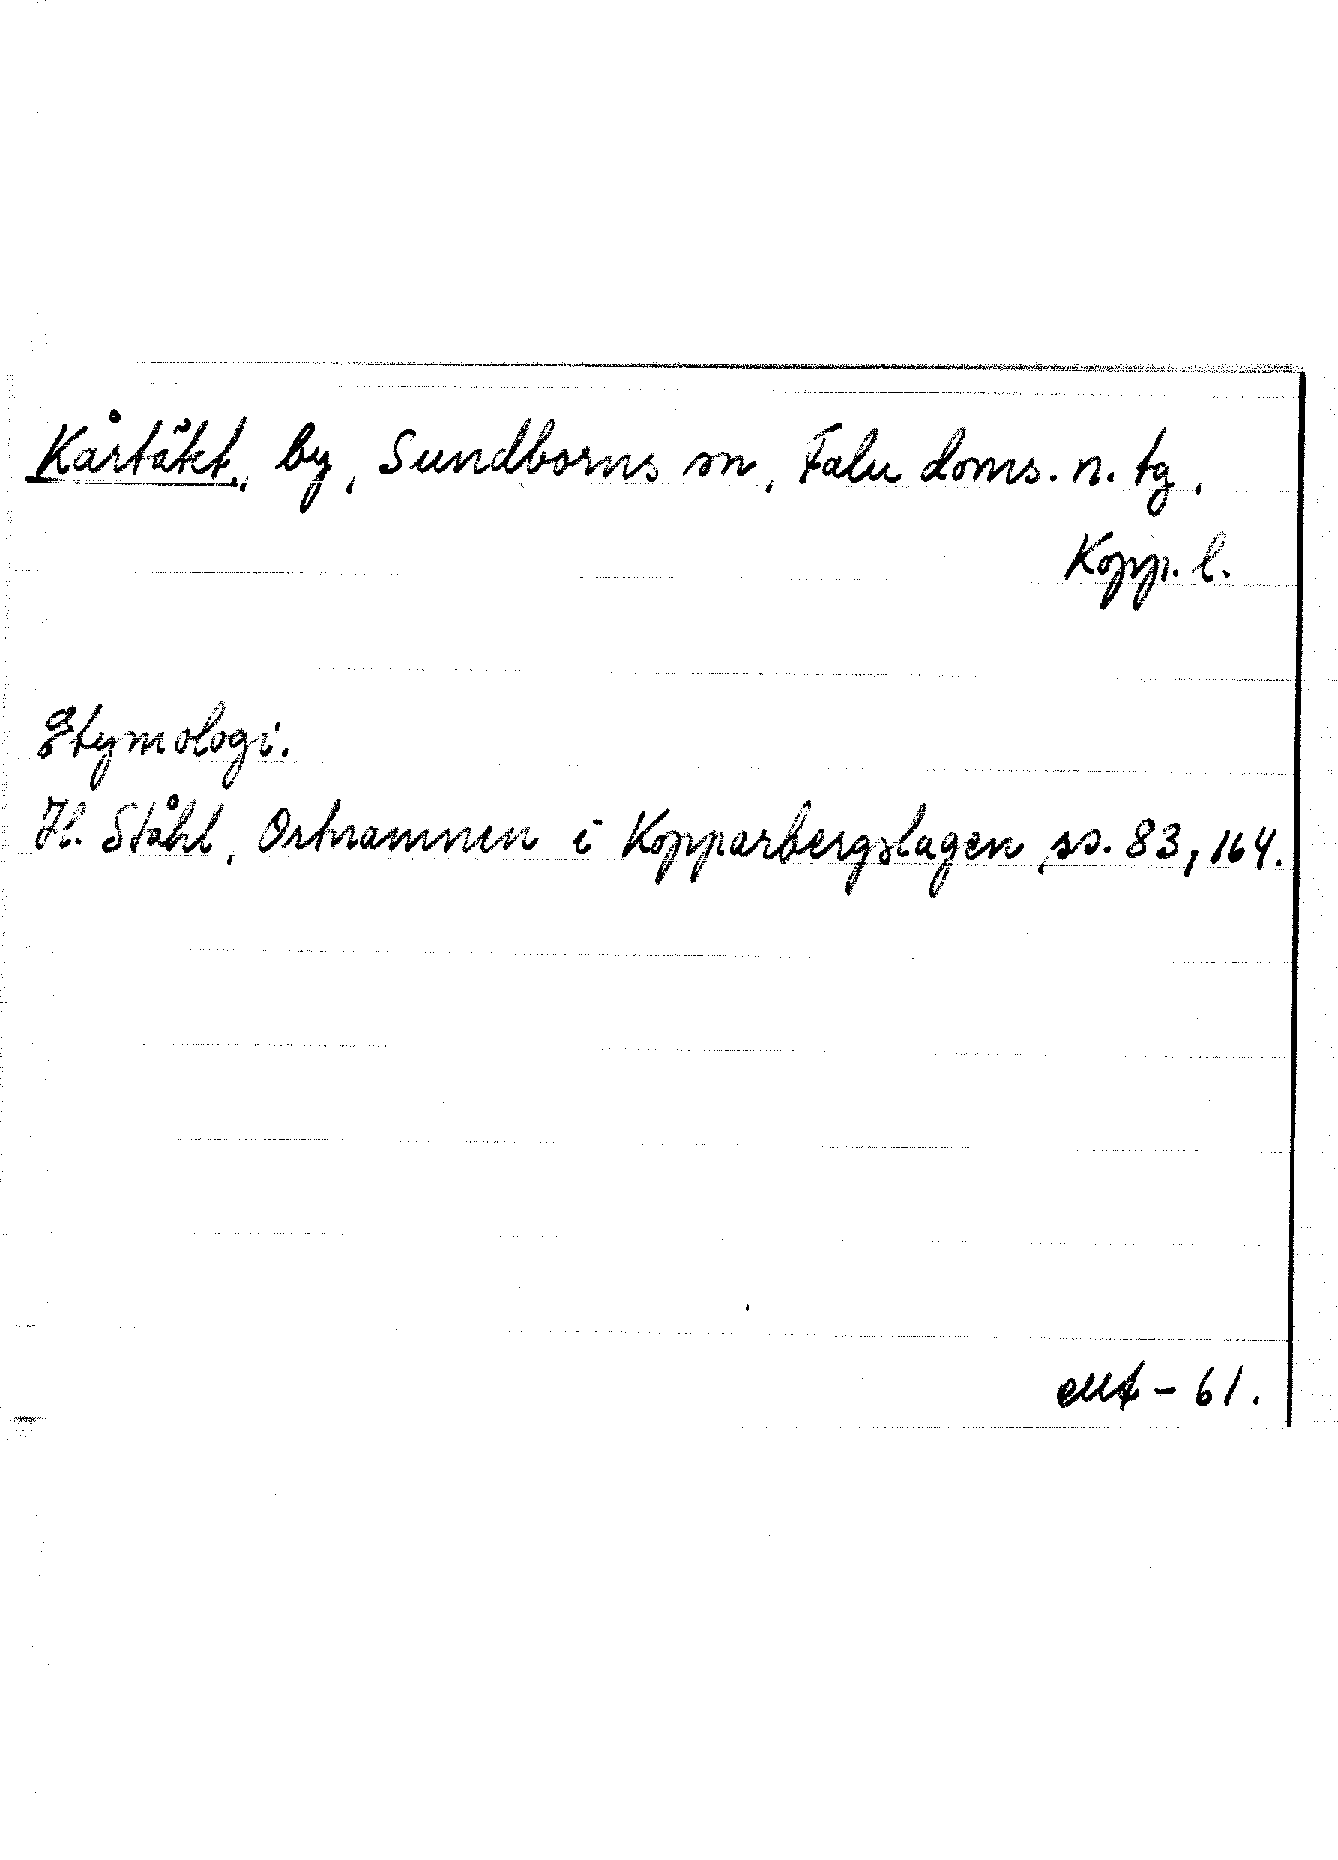 Kårtäkt, by, Sundborns sn, Falu doms. n. tg,
Kopp. l.
Etymologi.
H. Ståhl, Ortnamnen i Kopparbergslagen ss. 83, 164.
- 61.